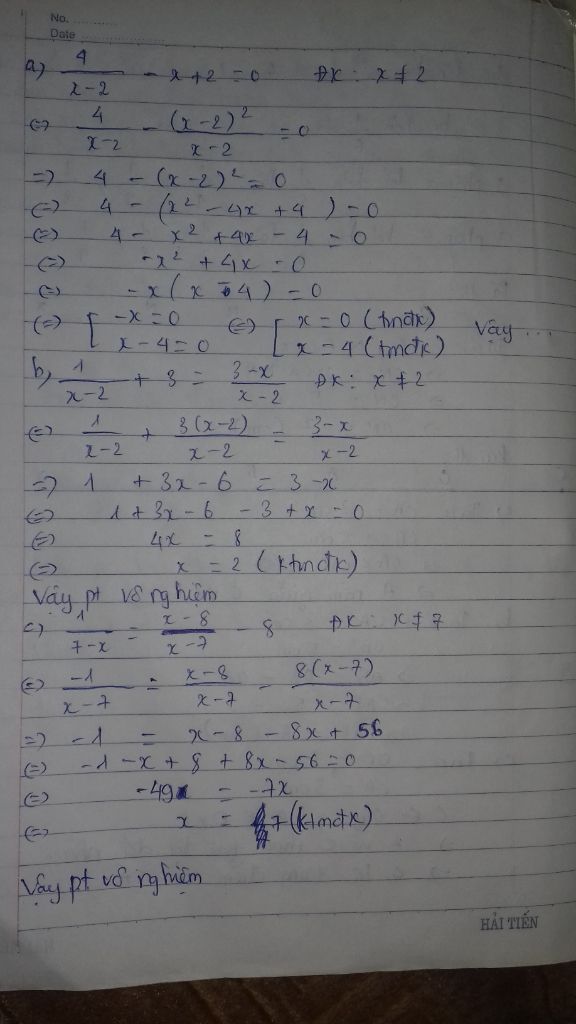 No. ............
Date ......................
a) 4/(x-2) - x + 2 = 0 ĐK : x ≠ 2
(=) 4/(x-2) - (x-2)²/(x-2) = 0
=) 4 - (x-2)² = 0
(=) 4 - (x² - 4x + 4) = 0
(=) 4 - x² + 4x - 4 = 0
(=) -x² + 4x = 0
(=) -x(x - 4) = 0
(=) [ -x = 0 (=) [ x = 0 (tmđk) Vậy ...
x - 4 = 0 x = 4 (tmđk)
b, 1/(x-2) + 3 = (3-x)/(x-2) ĐK : x ≠ 2
(=) 1/(x-2) + 3(x-2)/(x-2) = (3-x)/(x-2)
=) 1 + 3x - 6 = 3 - x
(=) 1 + 3x - 6 - 3 + x = 0
(=) 4x = 8
(=) x = 2 (ktmđk)
Vậy pt vô nghiệm
c) 1/(7-x) = (x-8)/(x-7) - 8 ĐK x ≠ 7
(=) -1/(x-7) = (x-8)/(x-7) - 8(x-7)/(x-7)
=) -1 = x - 8 - 8x + 56
(=) -1 - x + 8 + 8x - 56 = 0
(=) -49 = -7x
(=) x = 7 (ktmđk)
Vậy pt vô nghiệm
HẢI TIẾN